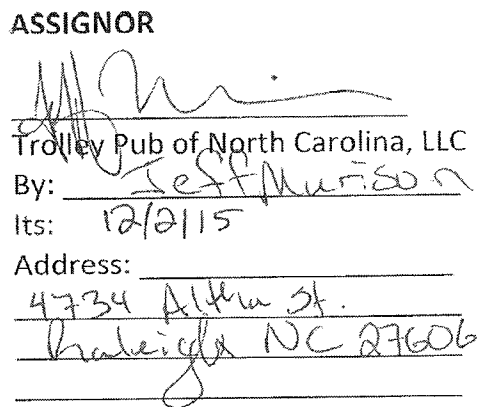 ASSIGNOR
Trolley Pub of North Carolina, LLC
By: Jeff Murison
Its: 12/2/15
Address:
4734 Altha St.
Raleigh NC 27606